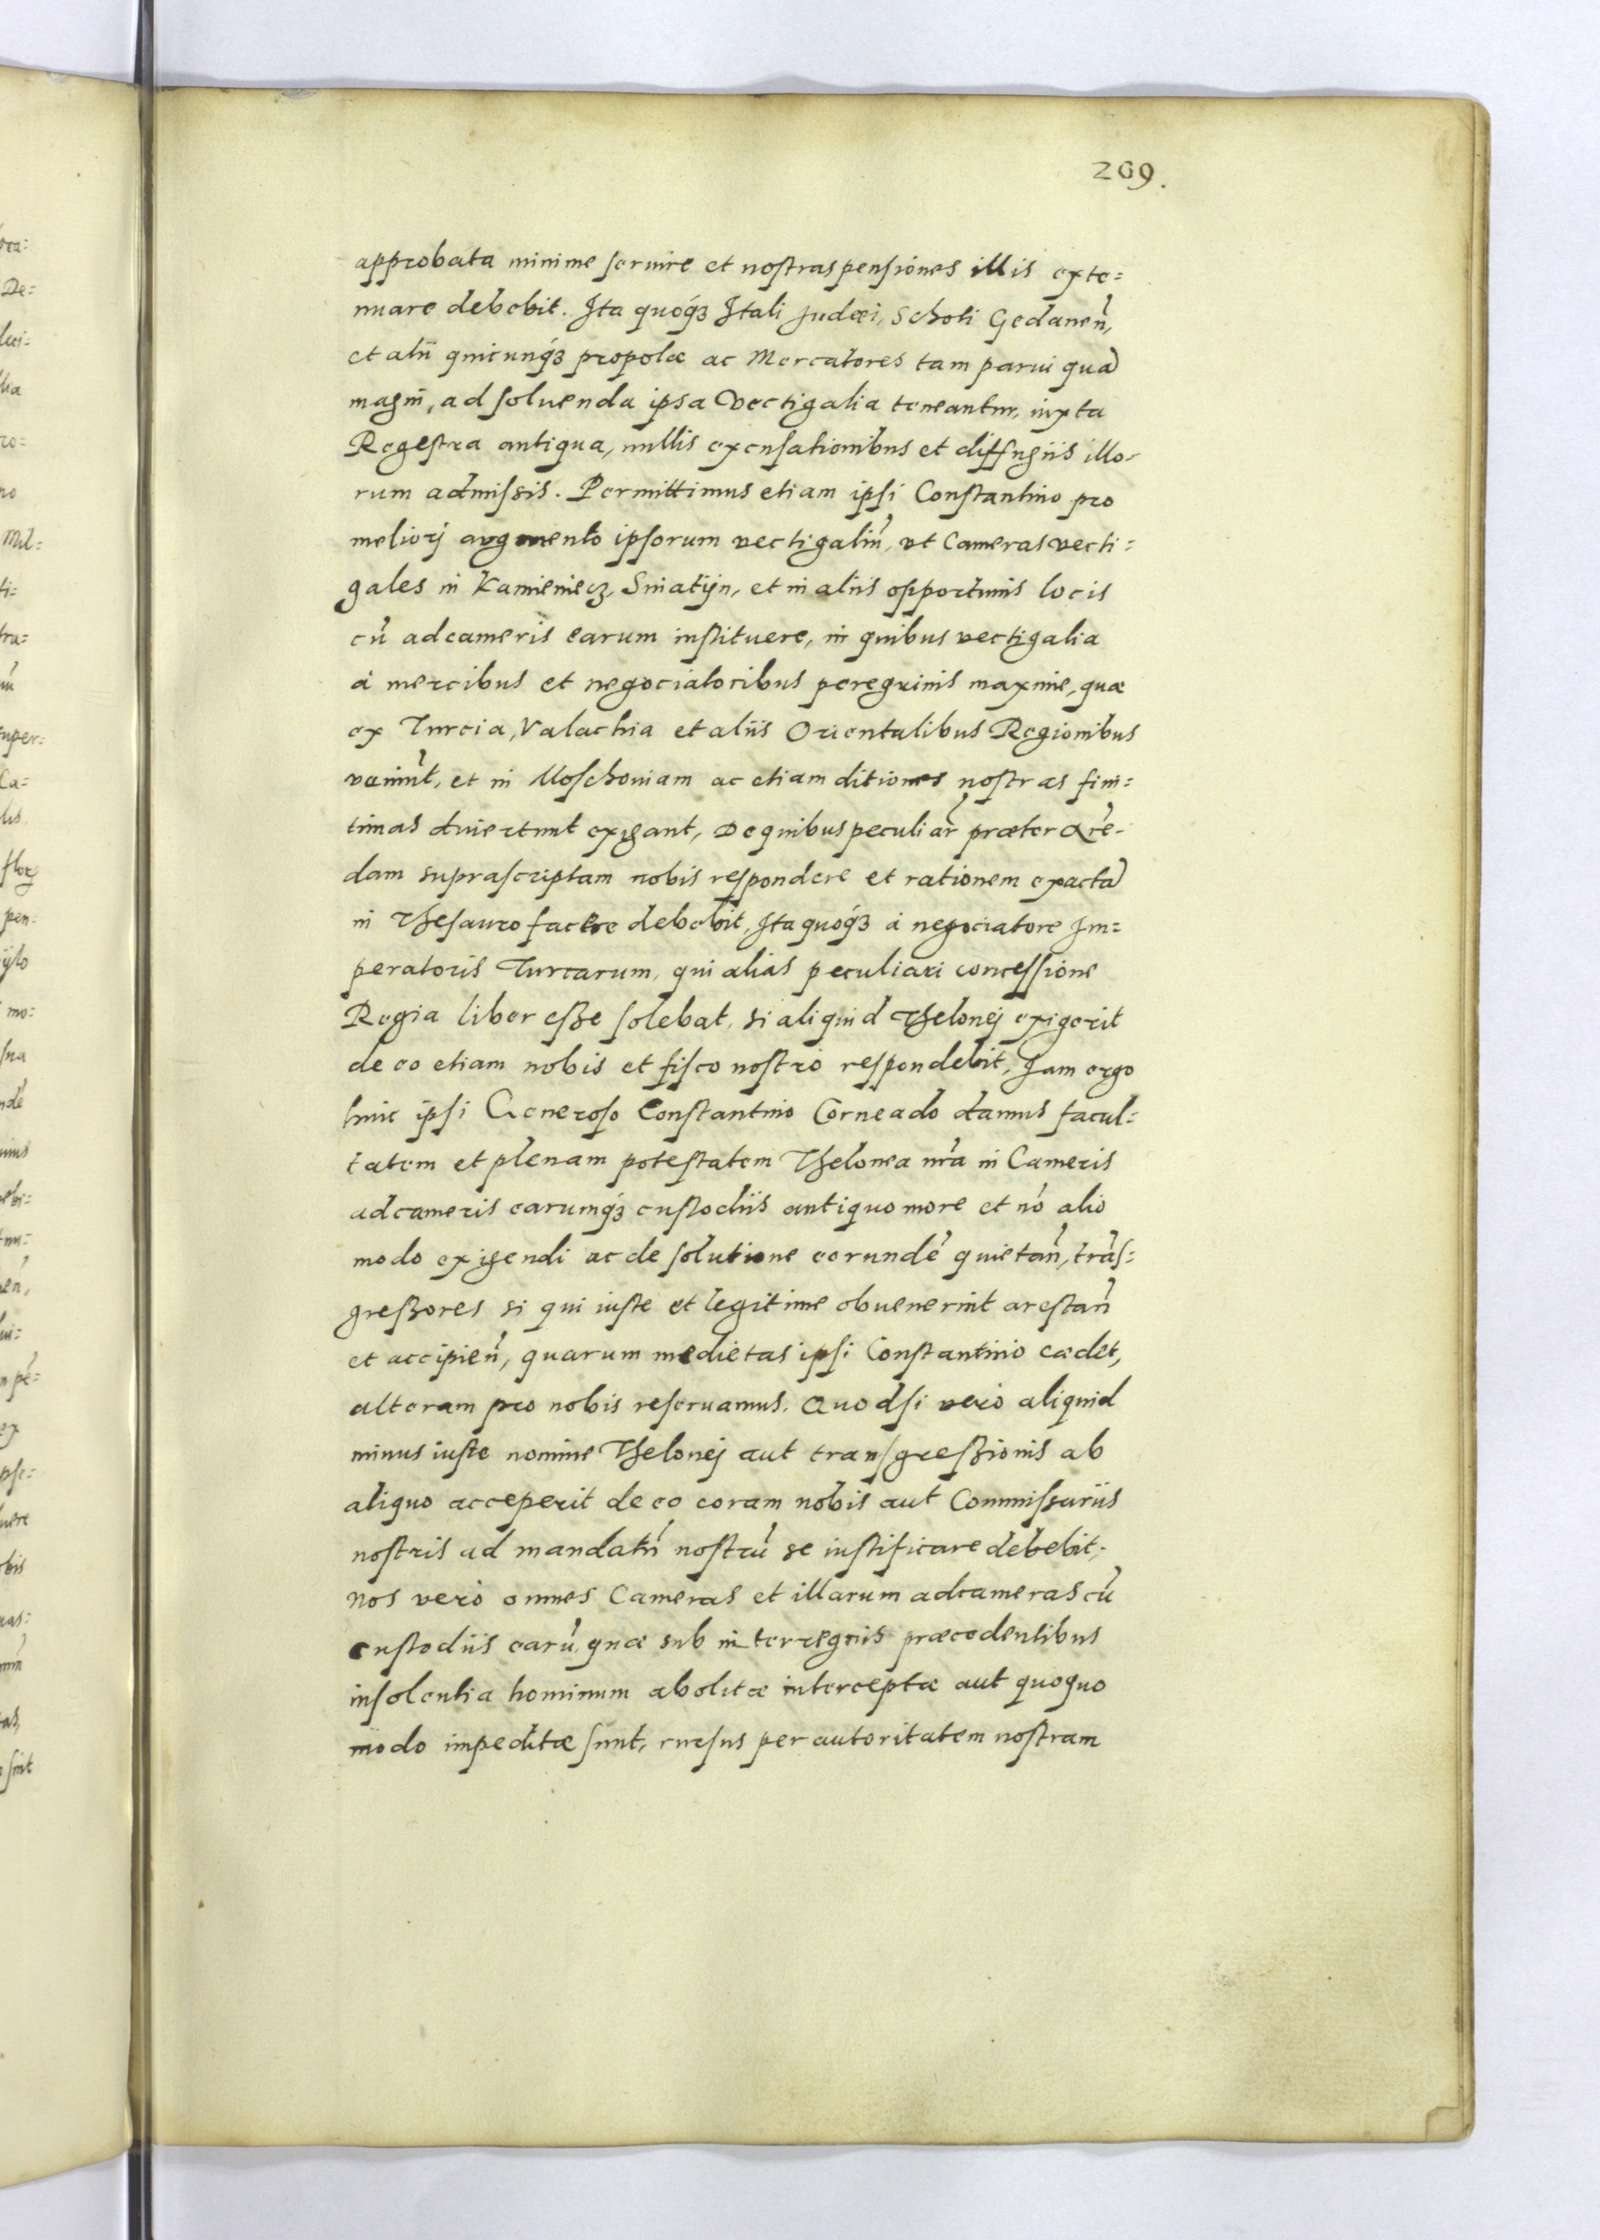 209.
approbata minime seruire et nostras pensiones illis exte=
nuare debebit. Ita quoq́ʒ Itali Judæi, Schoti Gedaneñ,
et alii quicunq́ʒ propolæ ac Mercatores tam parui quã
magni, ad soluenda ipsa Vectigalia teneantur, iuxta
Regestra antiqua, nullis excusationibus et diffugiis illo-
rum admissis. Permittimus etiam ipsi Constantino pro
meliorj augmento ipsorum vectigaliũ, vt Cameras vecti=
gales in Kamieniecz, Sniatÿn, et in aliis opportunis locis
cũ adcameris earum instituere, in quibus vectigalia
à mercibus et negociatoribus peregrinis maxime, quæ
ex Turcia, Valachia et aliis Orientalibus Regionibus
veniũt, et in Moschouiam ac etiam ditiones nostras fini=
timas diuertunt exigant, De quibus peculiar̃ præter Are-
dam suprascriptam nobis respondere et rationem exactã
in Thesauro facere debebit, Ita quoq́ʒ à negociatore Im=
peratoris Turcarum, qui alias peculiari concessione
Regia liber eße solebat, si aliquid Thelonej exigerit
de eo etiam nobis et fisco nostro respondebit, Jam ergo
huic ipsi Generoso Constantino Corneado damus facul=
tatem et plenam potestatem Thelonea nr̃a in Cameris
adcameris earumq́ʒ custodiis antiquo more et nõ alio
modo exigendi ac de solutione eorundẽ quietañ, trãs=
greßores si qui iuste et legitime obuenerint arestañ
et accipieñ, quarum medietas ipsi Constantino cædet,
alteram pro nobis reseruamus. Quodsi vero aliquid
minus iuste nomine Thelonej aut transgreßionis ab
aliquo acceperit de eo coram nobis aut Commissariis
nostris ad mandatũ nostrũ se iustificare debebit,
nos vero omnes Cameras et illarum adcameras cũ
custodiis earũ, quæ sub interregnis præcedentibus
insolentia hominum abolitæ interceptæ aut quoquo
modo impeditæ sunt, rursus per autoritatem nostram